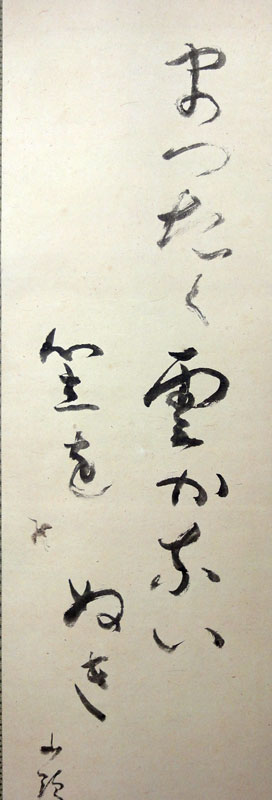 まつたく雲がない
笠をぬぎ
山頭